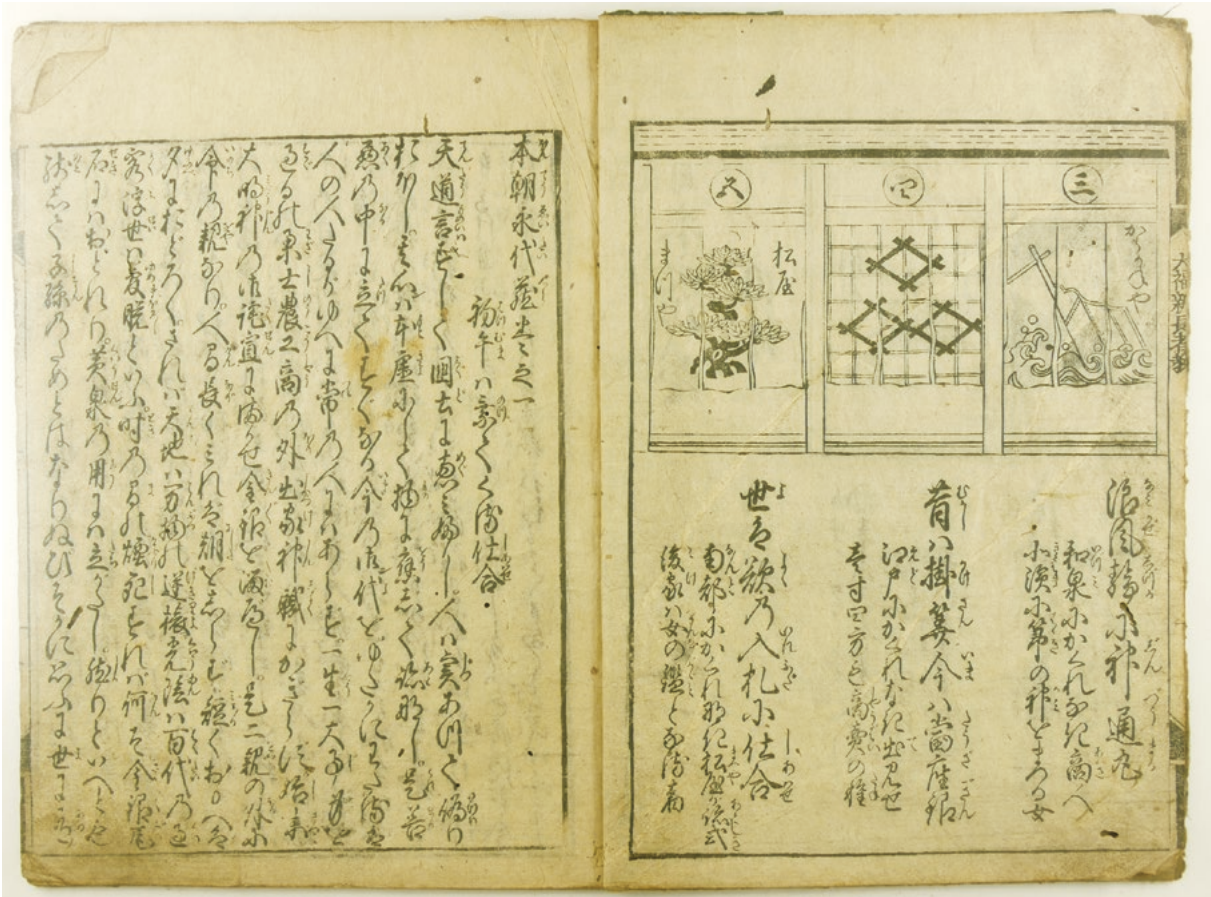 大福新長者教
三
四
五
松屋
まつや
浪風静に神通丸
和泉にかくれなき商人
北濱に箒の神をまつる女
昔ハ掛算今ハ當座銀
江戸にかくれなき出見世
壱寸四方も商賣の種
世は欲の入札に仕合
南都にかくれなき松屋が跡式
後家ハ女の鑑となる者
本朝永代蔵 巻之一
初午ハ乗てくる仕合
天道言ずして國土に恵ミふかし人ハ実あつて偽り
おほし其心ハ本虚にして物に應じて跡なし是善
悪の中に立てすぐなる今の御代をゆたかにわたるは
人の人たるがゆへに常の人にハあらず一生一大事身を
過るの業士農工商の外出家神職にかぎらず始末
大明神の御詫宣にまかせ金銀を溜べし是二親の外に
命の親なり人間長くみれば朝をしらず短くおもへば
夕におどろくされハ天地ハ万物の逆旅光陰ハ百代の過
客浮世ハ夢幻といふ時の間の煙死すれハ何ぞ金銀瓦
石にハおとれり黄泉の用にハ立がたし然りといへども
残して子孫のためとはなりぬひそかに思ふに世に有